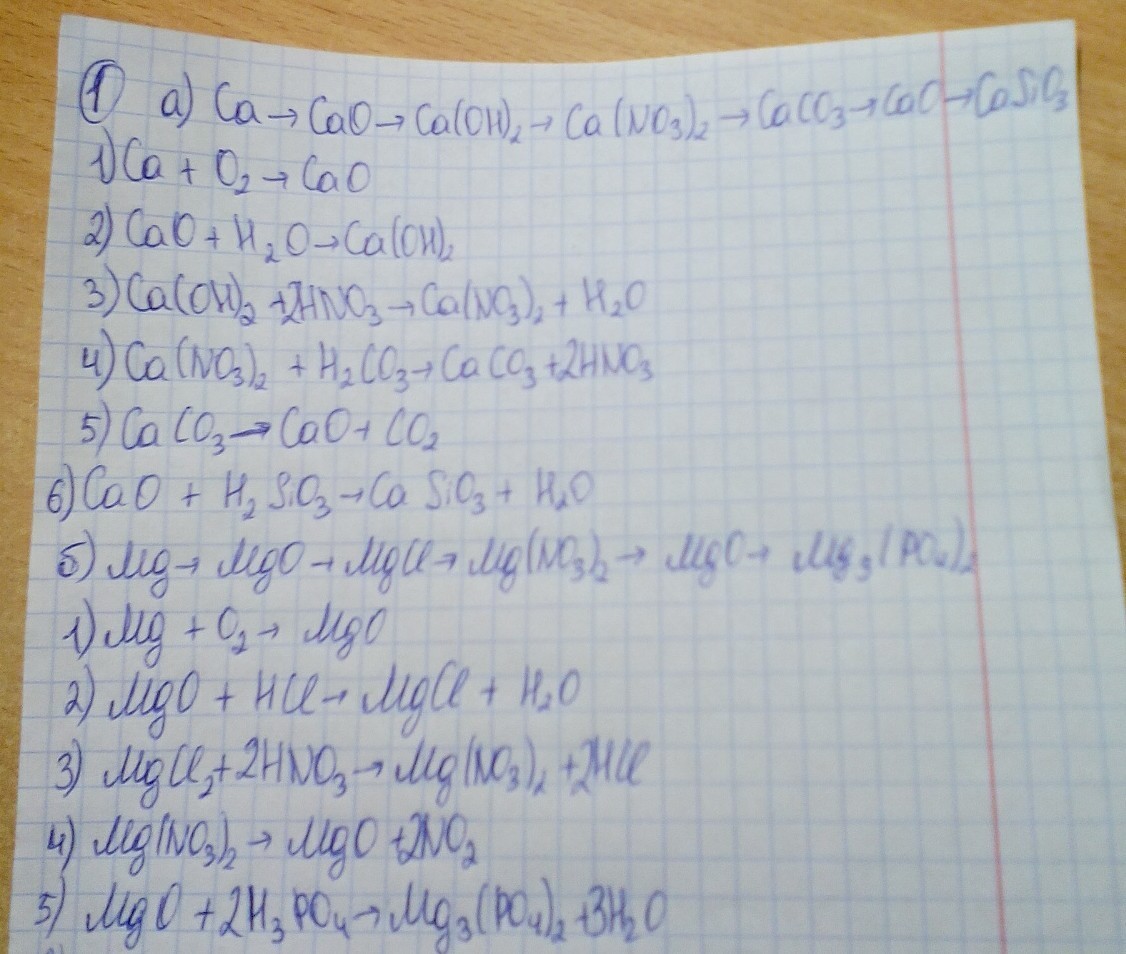 ① а) Ca → CaO → Ca(OH)₂ → Ca(NO₃)₂ → CaCO₃ → CaO → CaSiO₃
1) Ca + O₂ → CaO
2) CaO + H₂O → Ca(OH)₂
3) Ca(OH)₂ + 2HNO₃ → Ca(NO₃)₂ + H₂O
4) Ca(NO₃)₂ + H₂CO₃ → CaCO₃ + 2HNO₃
5) CaCO₃ → CaO + CO₂
6) CaO + H₂SiO₃ → CaSiO₃ + H₂O
б) Mg → MgO → MgCl → Mg(NO₃)₂ → MgO → Mg₃(PO₄)₂
1) Mg + O₂ → MgO
2) MgO + HCl → MgCl + H₂O
3) MgCl₂ + 2HNO₃ → Mg(NO₃)₂ + 2HCl
4) Mg(NO₃)₂ → MgO + 2NO₂
5) MgO + 2H₃PO₄ → Mg₃(PO₄)₂ + 3H₂O